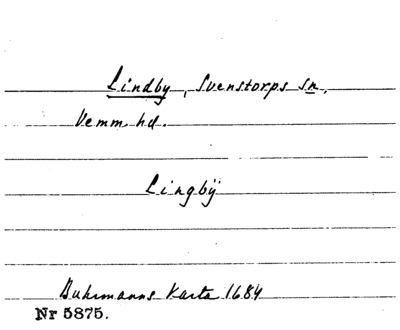 Lindby, Svenstorps sn,
Vemm. hd.
Lingbÿ
Buhrmanns Karta 1684
Nr 5875.